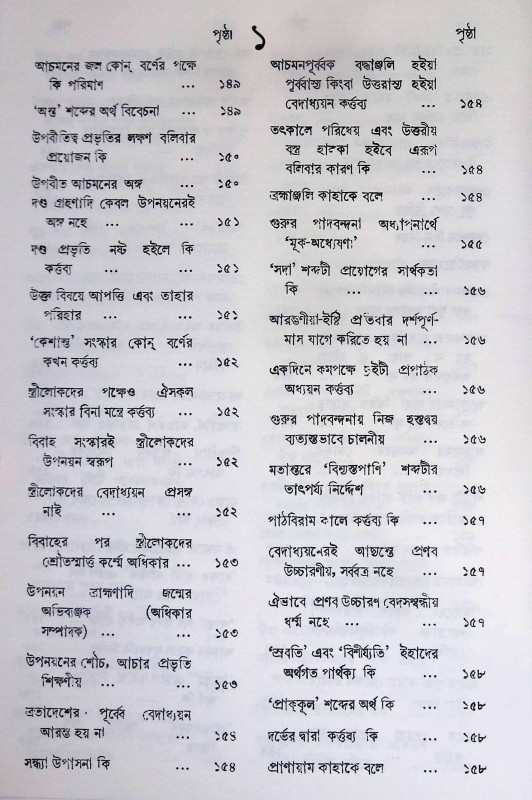 পৃষ্ঠা
১
পৃষ্ঠা
আচমনের জল কোন্ বর্ণের পক্ষে
কি পরিমাণ ... ১৪৯
‘অন্ত’ শব্দের অর্থ বিবেচনা ... ১৪৯
উপবীতিত্ব প্রভৃতির লক্ষণ বলিবার
প্রয়োজন কি ... ১৫০
উপবীত আচমনের অঙ্গ ... ১৫০
দণ্ড গ্রহণাদি কেবল উপনয়নেরই
অঙ্গ নহে ... ... ১৫১
দণ্ড প্রভৃতি নষ্ট হইলে কি
কর্ত্তব্য ... ... ১৫১
উক্ত বিষয়ে আপত্তি এবং তাহার
পরিহার ... ... ১৫১
‘কেশান্ত’ সংস্কার কোন্ বর্ণের
কখন কর্ত্তব্য ... ১৫২
স্ত্রীলোকদের পক্ষেও ঐসকল
সংস্কার বিনা মন্ত্রে কর্ত্তব্য ... ১৫২
বিবাহ সংস্কারই স্ত্রীলোকদের
উপনয়ন স্বরূপ ... ১৫২
স্ত্রীলোকদের বেদাধ্যয়ন প্রসঙ্গ
নাই ... ... ১৫২
বিবাহের পর স্ত্রীলোকদের
শ্রৌতস্মার্ত্ত কর্ম্মে অধিকার ... ১৫৩
উপনয়ন ব্রাহ্মণাদি জন্মের
অভিব্যঞ্জক (অধিকার
সম্পাদক) ... ... ১৫৩
উপনয়নের শৌচ, আচার প্রভৃতি
শিক্ষণীয় ... ... ১৫৩
ব্রতাদেশের পূর্ব্বে বেদাধ্যয়ন
আরম্ভ হয় না ... ১৫৪
সন্ধ্যা উপাসনা কি ... ১৫৪
আচমনপূর্ব্বক বদ্ধাঞ্জলি হইয়া
পূর্ব্বাস্য কিংবা উত্তরাস্য হইয়া
বেদাধ্যয়ন কর্ত্তব্য ... ১৫৪
তৎকালে পরিধেয় এবং উত্তরীয়
বস্ত্র হাল্কা হইবে এরূপ
বলিবার কারণ কি ... ১৫৪
ব্রহ্মাঞ্জলি কাহাকে বলে ... ১৫৪
গুরুর পাদবন্দনা অধ্যাপনার্থে
‘মূক-অধ্যেষণা’ ... ১৫৫
‘সদা’ শব্দটী প্রয়োগের সার্থকতা
কি ... ... ... ১৫৬
আরম্ভণীয়া-ইষ্টি প্রতিবার দর্শপূর্ণ-
মাস যাগে করিতে হয় না ... ১৫৬
একদিনে কমপক্ষে দুইটী প্রপাঠক
অধ্যয়ন কর্ত্তব্য ... ১৫৬
গুরুর পাদবন্দনায় নিজ হস্তদ্বয়
ব্যত্যস্তভাবে চালনীয় ... ১৫৬
মতান্তরে ‘বিন্যস্তপাণি’ শব্দটীর
তাৎপর্য্য নির্দ্দেশ ... ১৫৬
পাঠবিরাম কালে কর্ত্তব্য কি ... ১৫৭
বেদাধ্যয়নেরই আদ্যন্তে প্রণব
উচ্চারণীয়, সর্ব্বত্র নহে ... ১৫৭
ঐভাবে প্রণব উচ্চারণ বেদসম্বন্ধীয়
ধর্ম্ম নহে ... ... ১৫৭
‘স্রবতি’ এবং ‘বিশীর্য্যতি’ ইহাদের
অর্থগত পার্থক্য কি ... ১৫৮
‘প্রাক্কূল’ শব্দের অর্থ কি ... ১৫৮
দর্ভের দ্বারা কর্ত্তব্য কি ... ১৫৮
প্রাণায়াম কাহাকে বলে ... ১৫৮